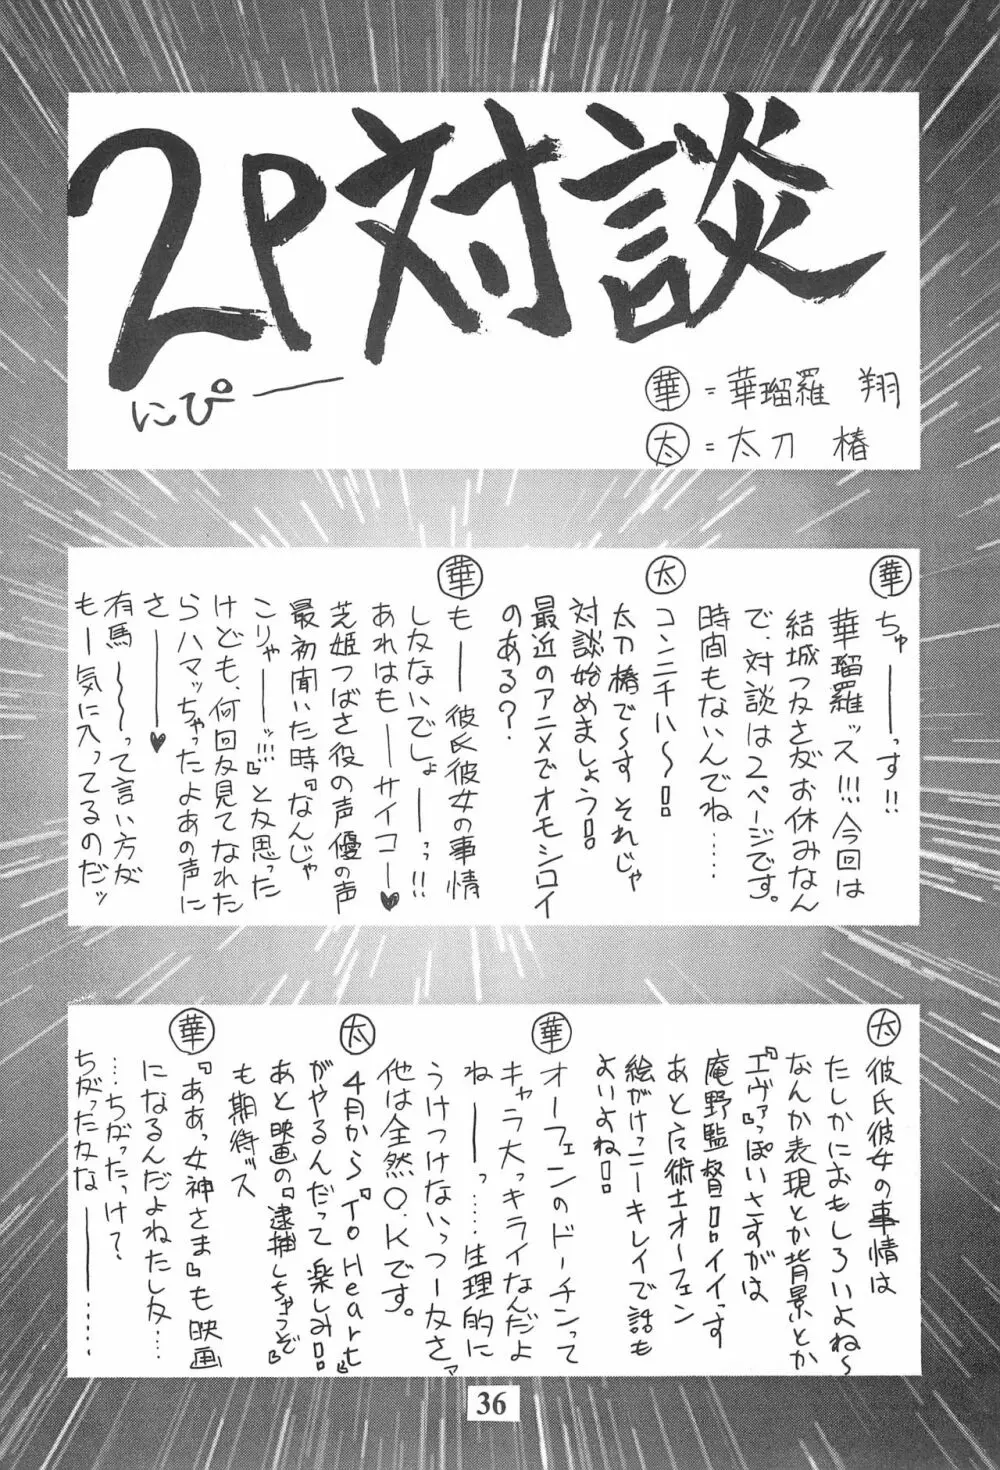 2P対談
にぴー
華=華瑠羅 翔
太=太刀 椿
華
ちゅーーっす!!
華瑠羅ッス!!!今回は
結城つかさがお休みなん
で、対談は2ページです。
時間もないんでね……
太
コンニチハ〜!!
太刀椿で〜す それじゃ
対談始めましょう!!
最近のアニメでオモシロイ
のある?
華
もーー彼氏彼女の事情
しかないでしょーーっっ!!
あれはもーーサイコー♥
芝姫つばさ役の声優の声
最初聞いた時『なんじゃ
こりゃーーッ!!!』とか思った
けども、何回か見てなれた
らハマッちゃったよあの声に
さーーー♥
有馬〜〜って言い方が
もー気に入ってるのだッ
太
彼氏彼女の事情は
たしかにおもしろいよね〜
なんか表現とか背景とか
『エヴァ』っぽいさすがは
庵野監督!!イイっす
あと魔術士オーフェン
絵がけっこーキレイで話も
よいよね!!
華
オーフェンのドーチンって
キャラ大っキライなんだよ
ねーーっ……生理的に
うけつけないっつーかさァ
他は全然O.Kです。
太
4月から『To Heart』
がやるんだって楽しみ!!
あと映画の『逮捕しちゃうぞ』
も期待ズス
華
『ああっ女神さま』も映画
になるんだよねたしか……
……ちがったっけ?
ちがったかなーーー……
36